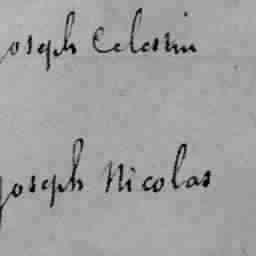 Joseph Celestin
Joseph Nicolas